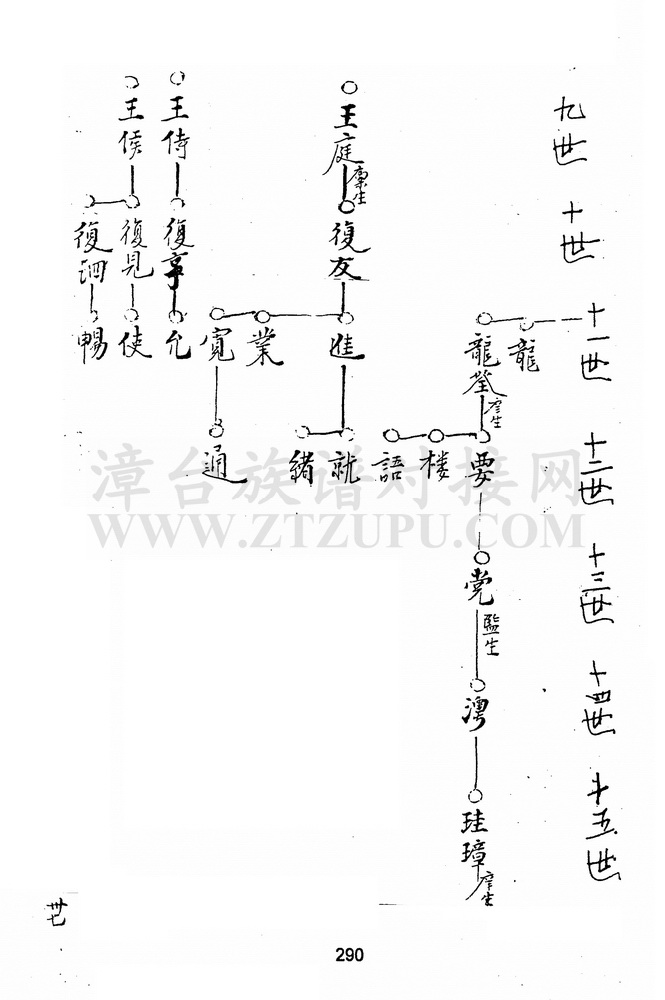 九世
十世
十一世
十二世
十三世
十四世
十五世
龍
龍荃
庠生
要
樓
語
党
監生
灣
珪璋
庠生
王庭
廩生
復友
進
業
寬
就
緒
通
王侍
復享
允
王侯
復見
使
復調
暢
漳台族谱对接网
WWW.ZTZUPU.COM
卅七
290